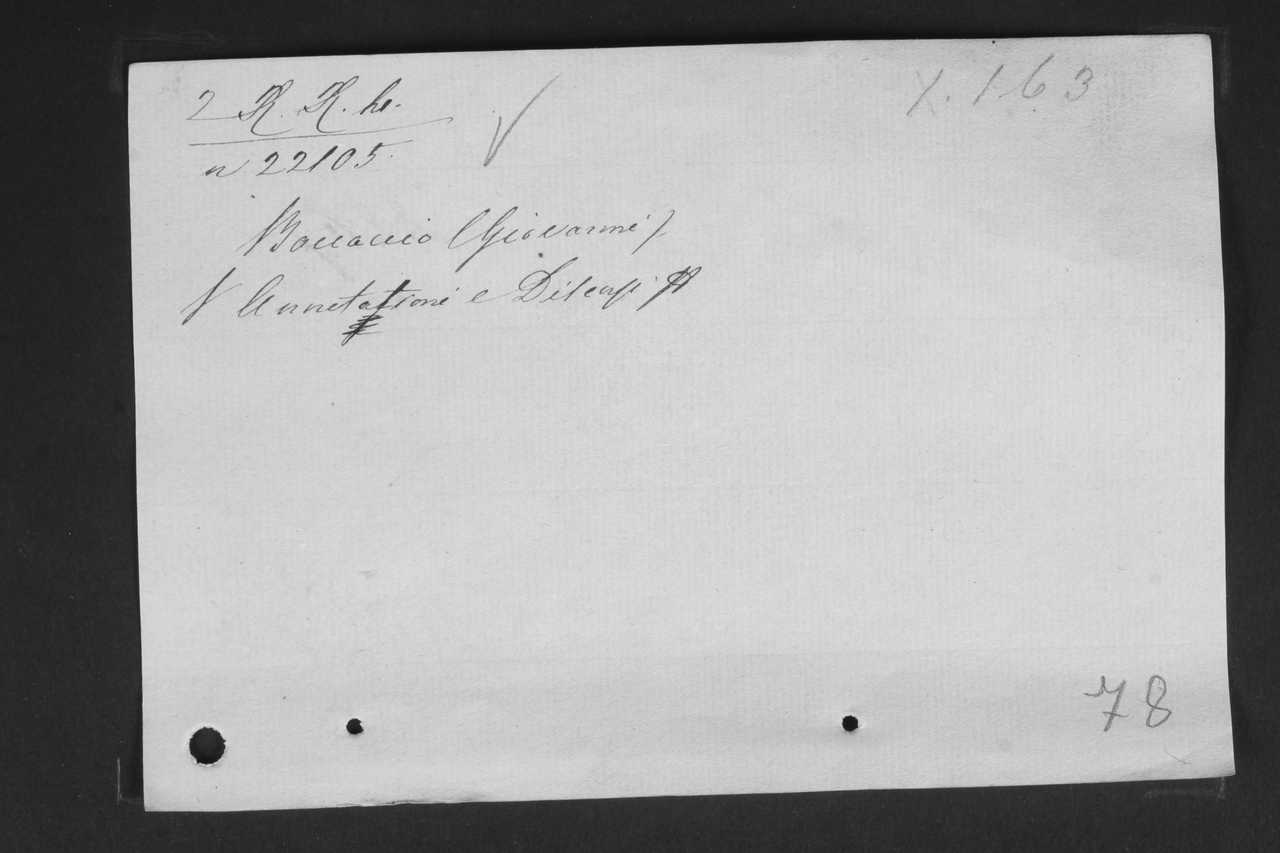 2 R. R. he.
X. 163
n 22105.
Boccaccio (Giovanni)
V Annotationi e Discorsi
78